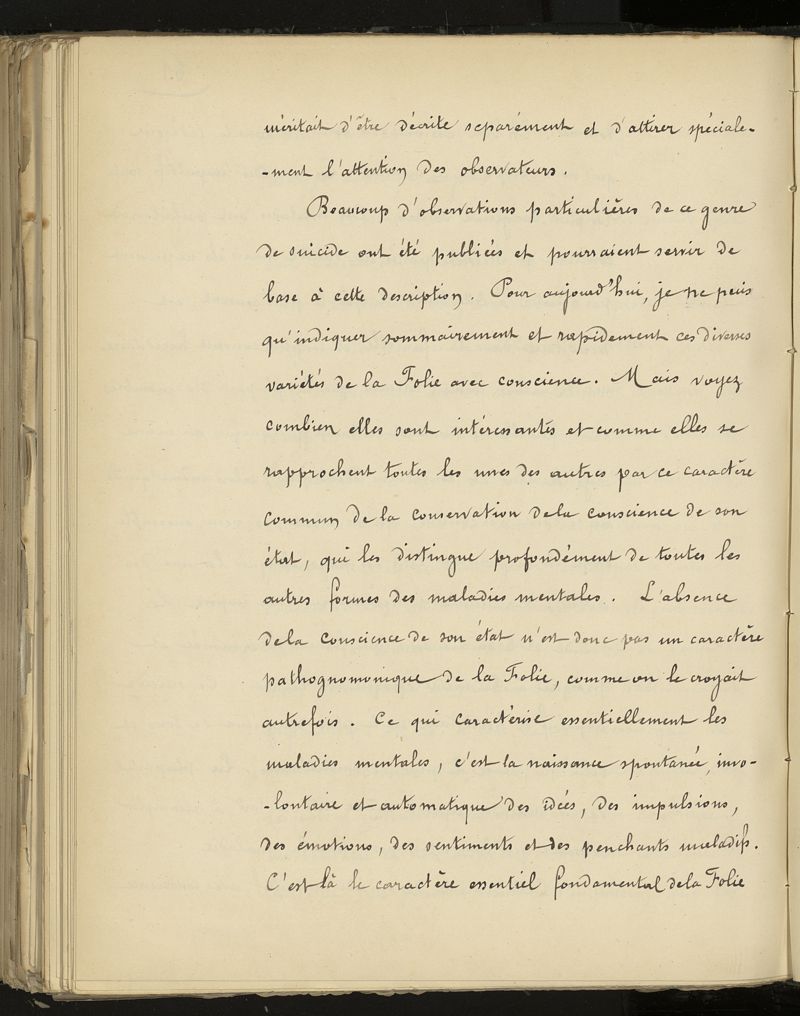 méritait d'être décrite séparément et d'attirer spéciale-
-ment l'attention des observateurs.
Beaucoup d'observations particulières de ce genre
de suicide ont été publiées et pourraient servir de
base à cette description. Pour aujourd'hui, je ne puis
qu'indiquer sommairement et rapidement ces diverses
variétés de la Folie avec conscience. Mais voyez
combien elles sont intéressantes et comme elles se
rapprochent toutes les unes des autres par ce caractère
commun de la conservation de la conscience de son
état, qui les distingue profondément de toutes les
autres formes des maladies mentales. L'absence
de la conscience de son état n'est donc pas un caractère
pathognomonique de la Folie, comme on le croyait
autrefois. Ce qui caractérise essentiellement les
maladies mentales, c'est la naissance spontanée, invo-
-lontaire et automatique des idées, des impulsions,
des émotions, des sentiments et des penchants maladifs.
C'est là le caractère essentiel fondamental de la Folie